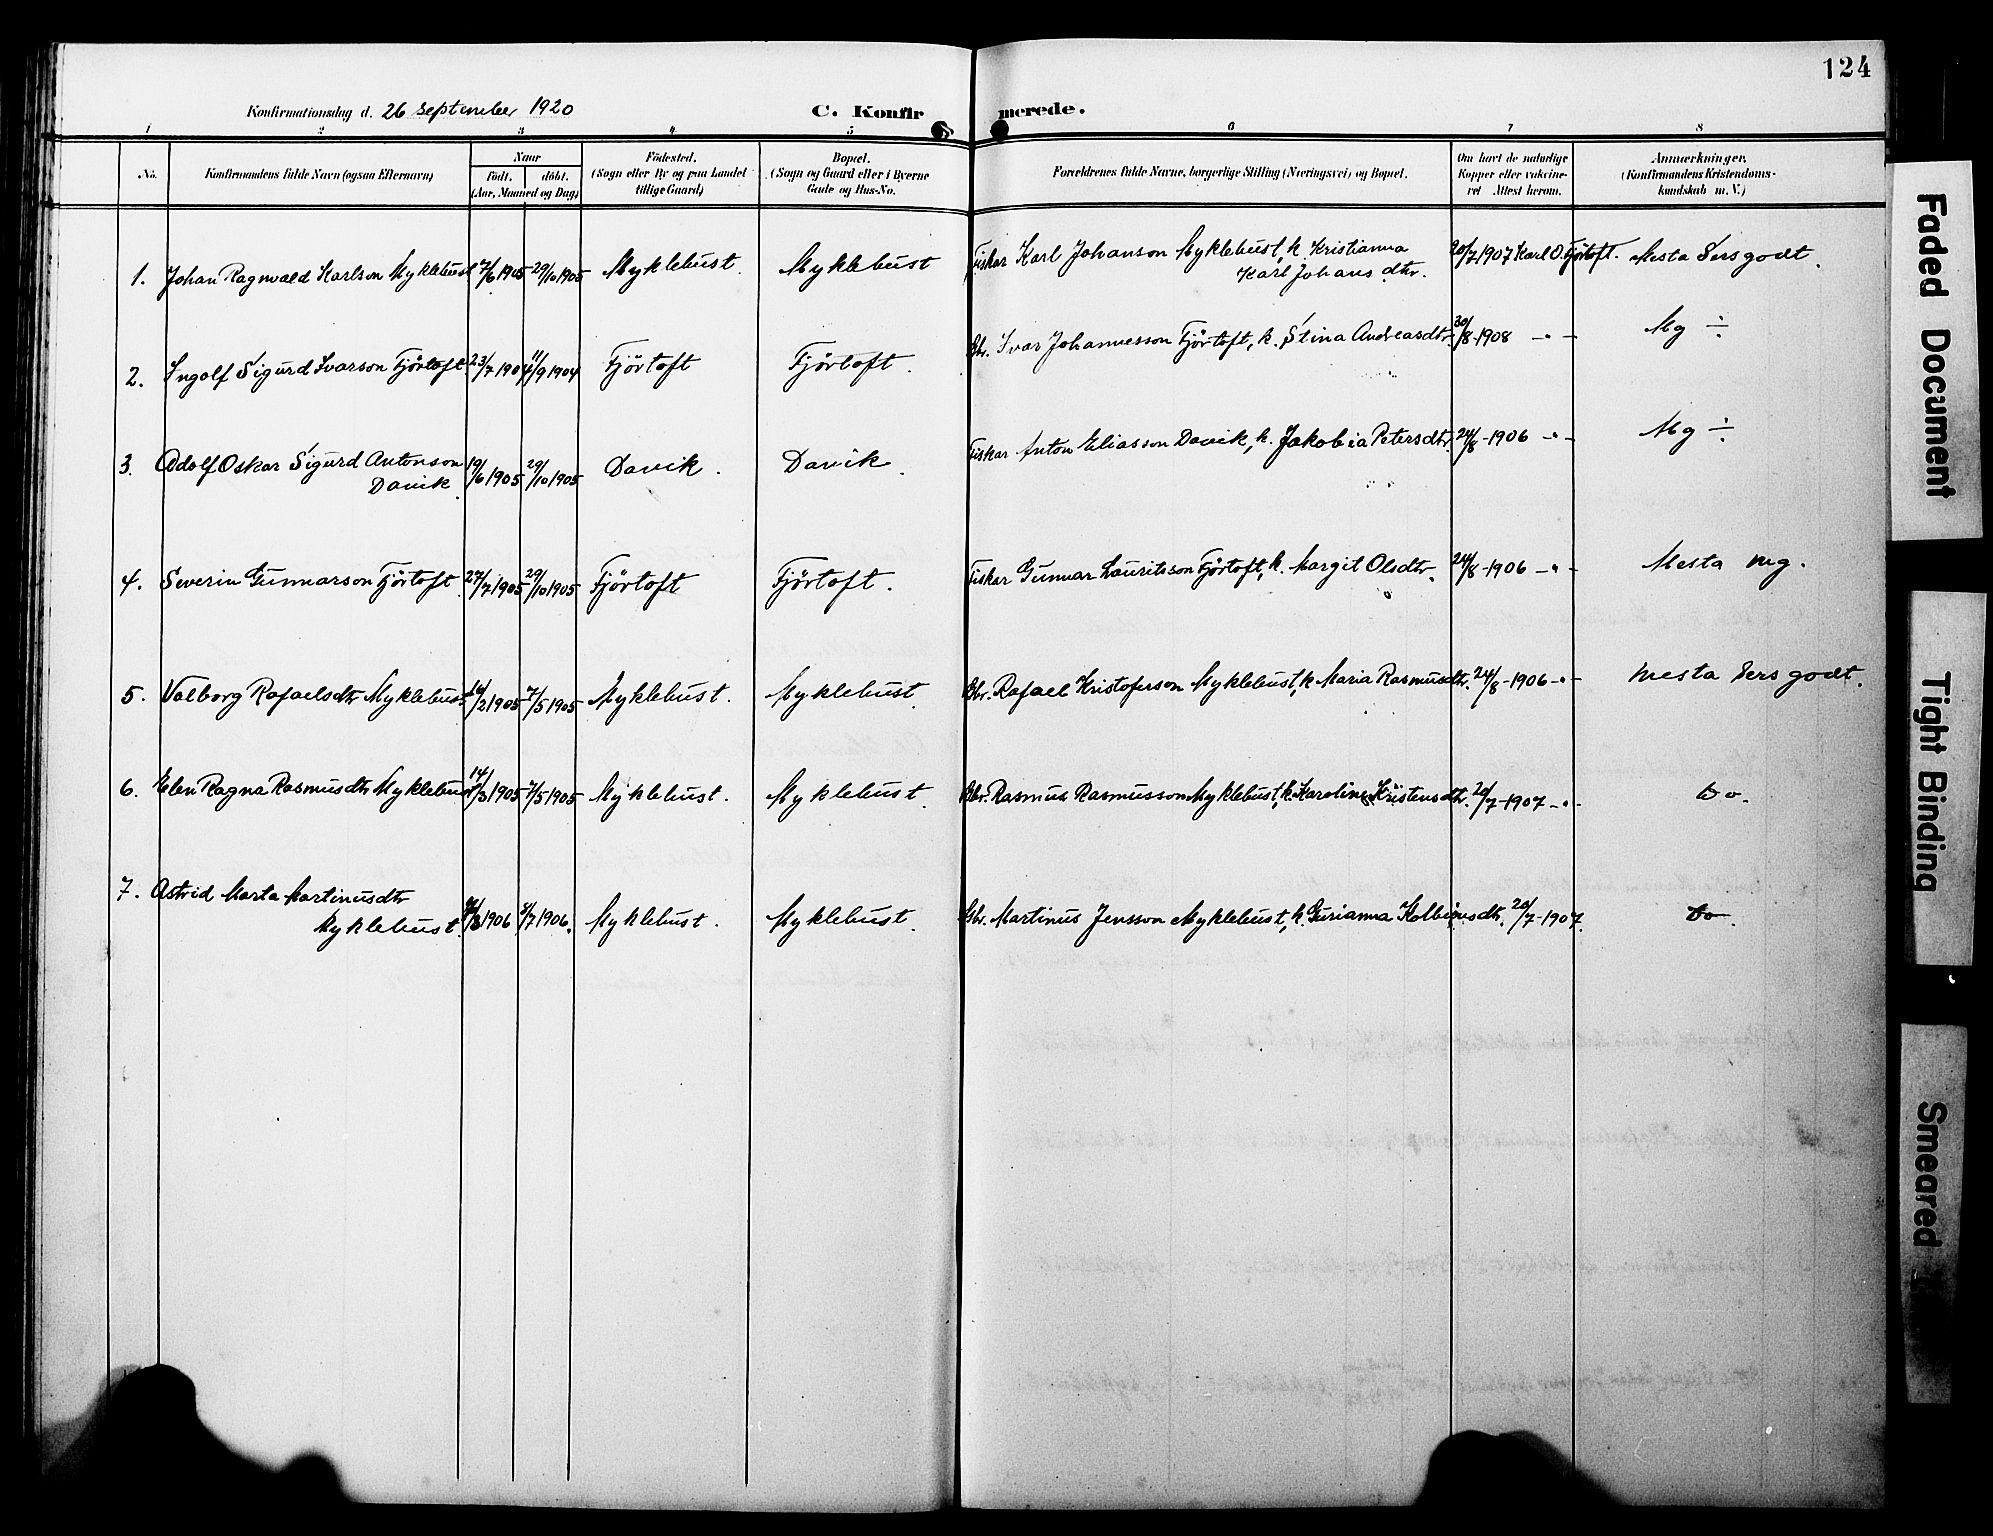 124
Konfirmationsdag d. 26 september 1920
C. Konfirmerede.
1 2 3 4 5 6 7 8
No.
Konfirmandens fulde Navn (ogsaa Efternavn)
Naar
födt. döbt.
(Aar, Maaned og Dag)
Födested.
(Sogn eller By og paa Landet
tillige Gaard)
Bopæl.
(Sogn og Gaard eller i Byerne
Gade og Hus-No.
Forældrenes fulde Navne, borgerlige Stilling (Næringsvei) og Bopæl.
Om havt de naturlige
Kopper eller vakcine-
ret Attest herom.
Anmærkninger.
(Konfirmandens Kristendoms-
kundskab m. V.)
1. Johan Ragnvald Karlson Myklebust 7/6 1905 29/10 1905 Myklebust. Myklebust Fiskar Karl Johanson Myklebust, k. Kristianna
Karl Johans dtr. 20/7 1907 Karl O. Fjörtoft. Mesta Sers godt.
2. Ingolf Sigurd Ivarson Fjörtoft 23/7 1904 11/9 1904 Fjörtoft Fjörtoft. Gbr. Ivar Johannesson Fjörtoft, k. Stina Andreasdtr. 30/8-1908 -"- Mg ÷
3. Adolf Oskar Sigurd Antonson
Davik. 19/6 1905 29/10 1905 Davik. Davik. Fiskar Anton Eliasson Davik, k. Jakobia Petersdtr. 24/8-1906 -"- Mg ÷
4. Severin Gunnarson Fjörtoft 27/7 1905 29/10 1905 Fjörtoft Fjörtoft. Fiskar Gunnar Lauritsson Fjörtoft, k. Margit Olsdtr. 24/8-1906 -"- Mesta mg.
5. Valborg Rafaelsdtr Myklebust 16/2 1905 7/5 1905 Myklebust. Myklebust. Gbr. Rafael Kristoferson Myklebust, k. Maria Rasmusdtr. 24/8-1906 -"- Mesta Sers godt.
6. Elen Ragna Rasmusdtr Myklebust 14/3 1905 7/5 1905 Myklebust. Myklebust. Gbr. Rasmus Rasmusson Myklebust, k. Karoline Kristensdtr. 20/7-1907 -"- Do.
7. Astrid Marta Martinusdtr
Myklebust. 1906 1/7 1906. Myklebust. Myklebust. Gbr. Martinus Jensson Myklebust, k. Gurianna Kolbeinsdtr. 20/7-1907. Do.
Faded Document
Tight Binding
Smeared